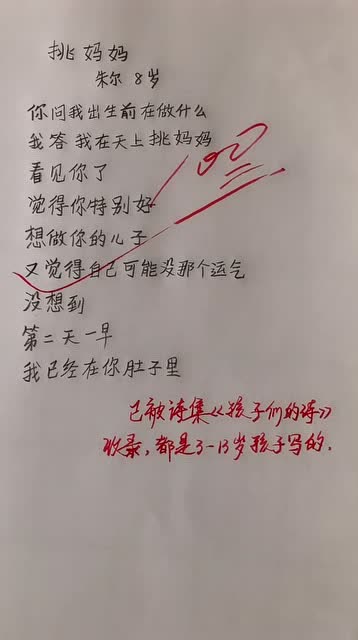 挑妈妈
朱尔 8岁
你问我出生前在做什么
我答 我在天上挑妈妈
看见你了
觉得你特别好
想做你的儿子
又觉得自己可能没那个运气
没想到
第二天一早
我已经在你肚子里
100
已被诗集《孩子们的诗》
收录,都是3-13岁孩子写的.